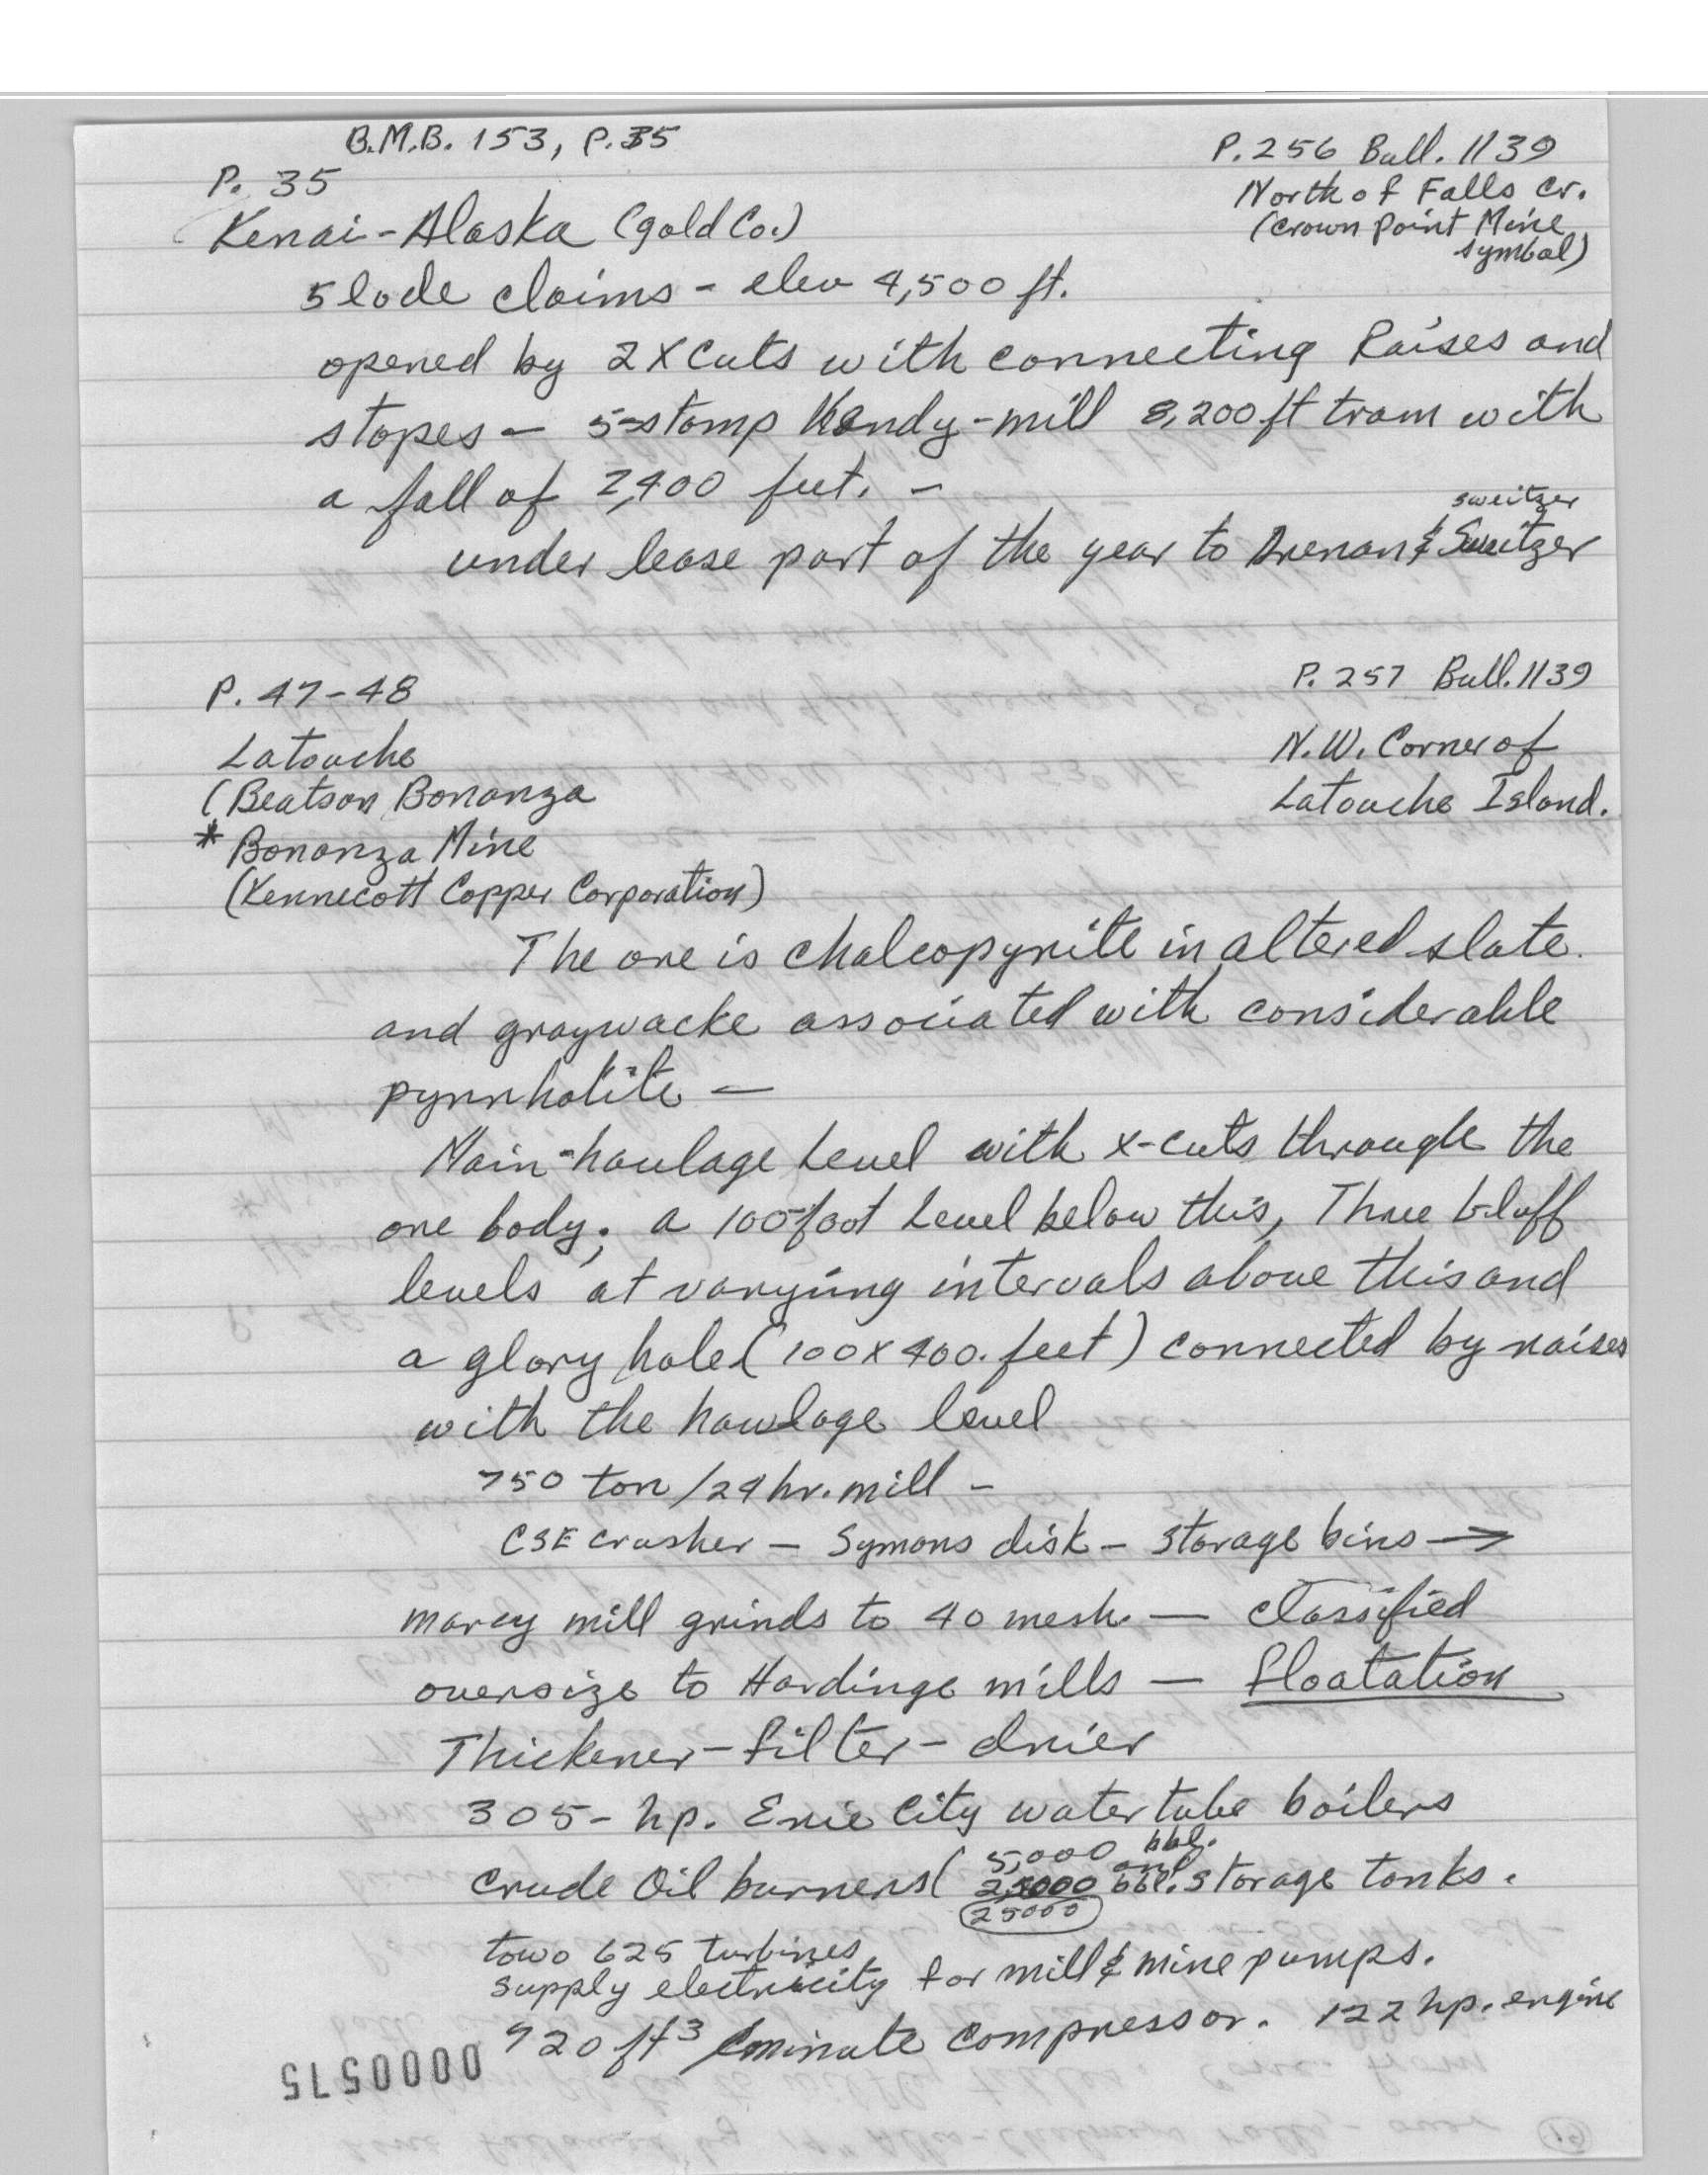 B.M.B. 153, P.35
P. 256 Bull. 1139
P. 35
North of Falls Cr.
Kenai-Alaska (gold Co.)
(Crown Point Mine
symbol)
5 lode claims - elev 4,500 ft.
opened by 2 X Cuts with connecting Raises and
stopes - 5-stamp Handy-mill 8,200 ft tram with
a fall of 2,400 feet. -
sweitzer
under lease part of the year to Drenan & Sweitzer
P. 47-48
P. 257 Bull. 1139
Latouche
N.W. Corner of
(Beatson Bonanza
Latouche Island.
* Bonanza Mine
(Kennecott Copper Corporation)
The ore is chalcopyrite in altered slate.
and graywacke associated with considerable
pyrrhotite -
Main-haulage Level with x-cuts through the
ore body; a 100 foot Level below this, Three bluff
levels at varying intervals above this and
a glory hole (100 x 400. feet) connected by raises
with the haulage level
750 ton /24 hr. mill -
CSE crusher - Symons disk - storage bins →
marcy mill grinds to 40 mesh. - classified
oversize to Hardinge mills - floatation
Thickener - filter - drier
305- hp. Erie City water tube boilers
5,000 bbl.
and
Crude Oil burners ( bbl. storage tanks.
25000
towo 625 turbines
supply electricity for mill & mine pumps.
920 ft3/minute compressor. 122 hp. engine
0000575